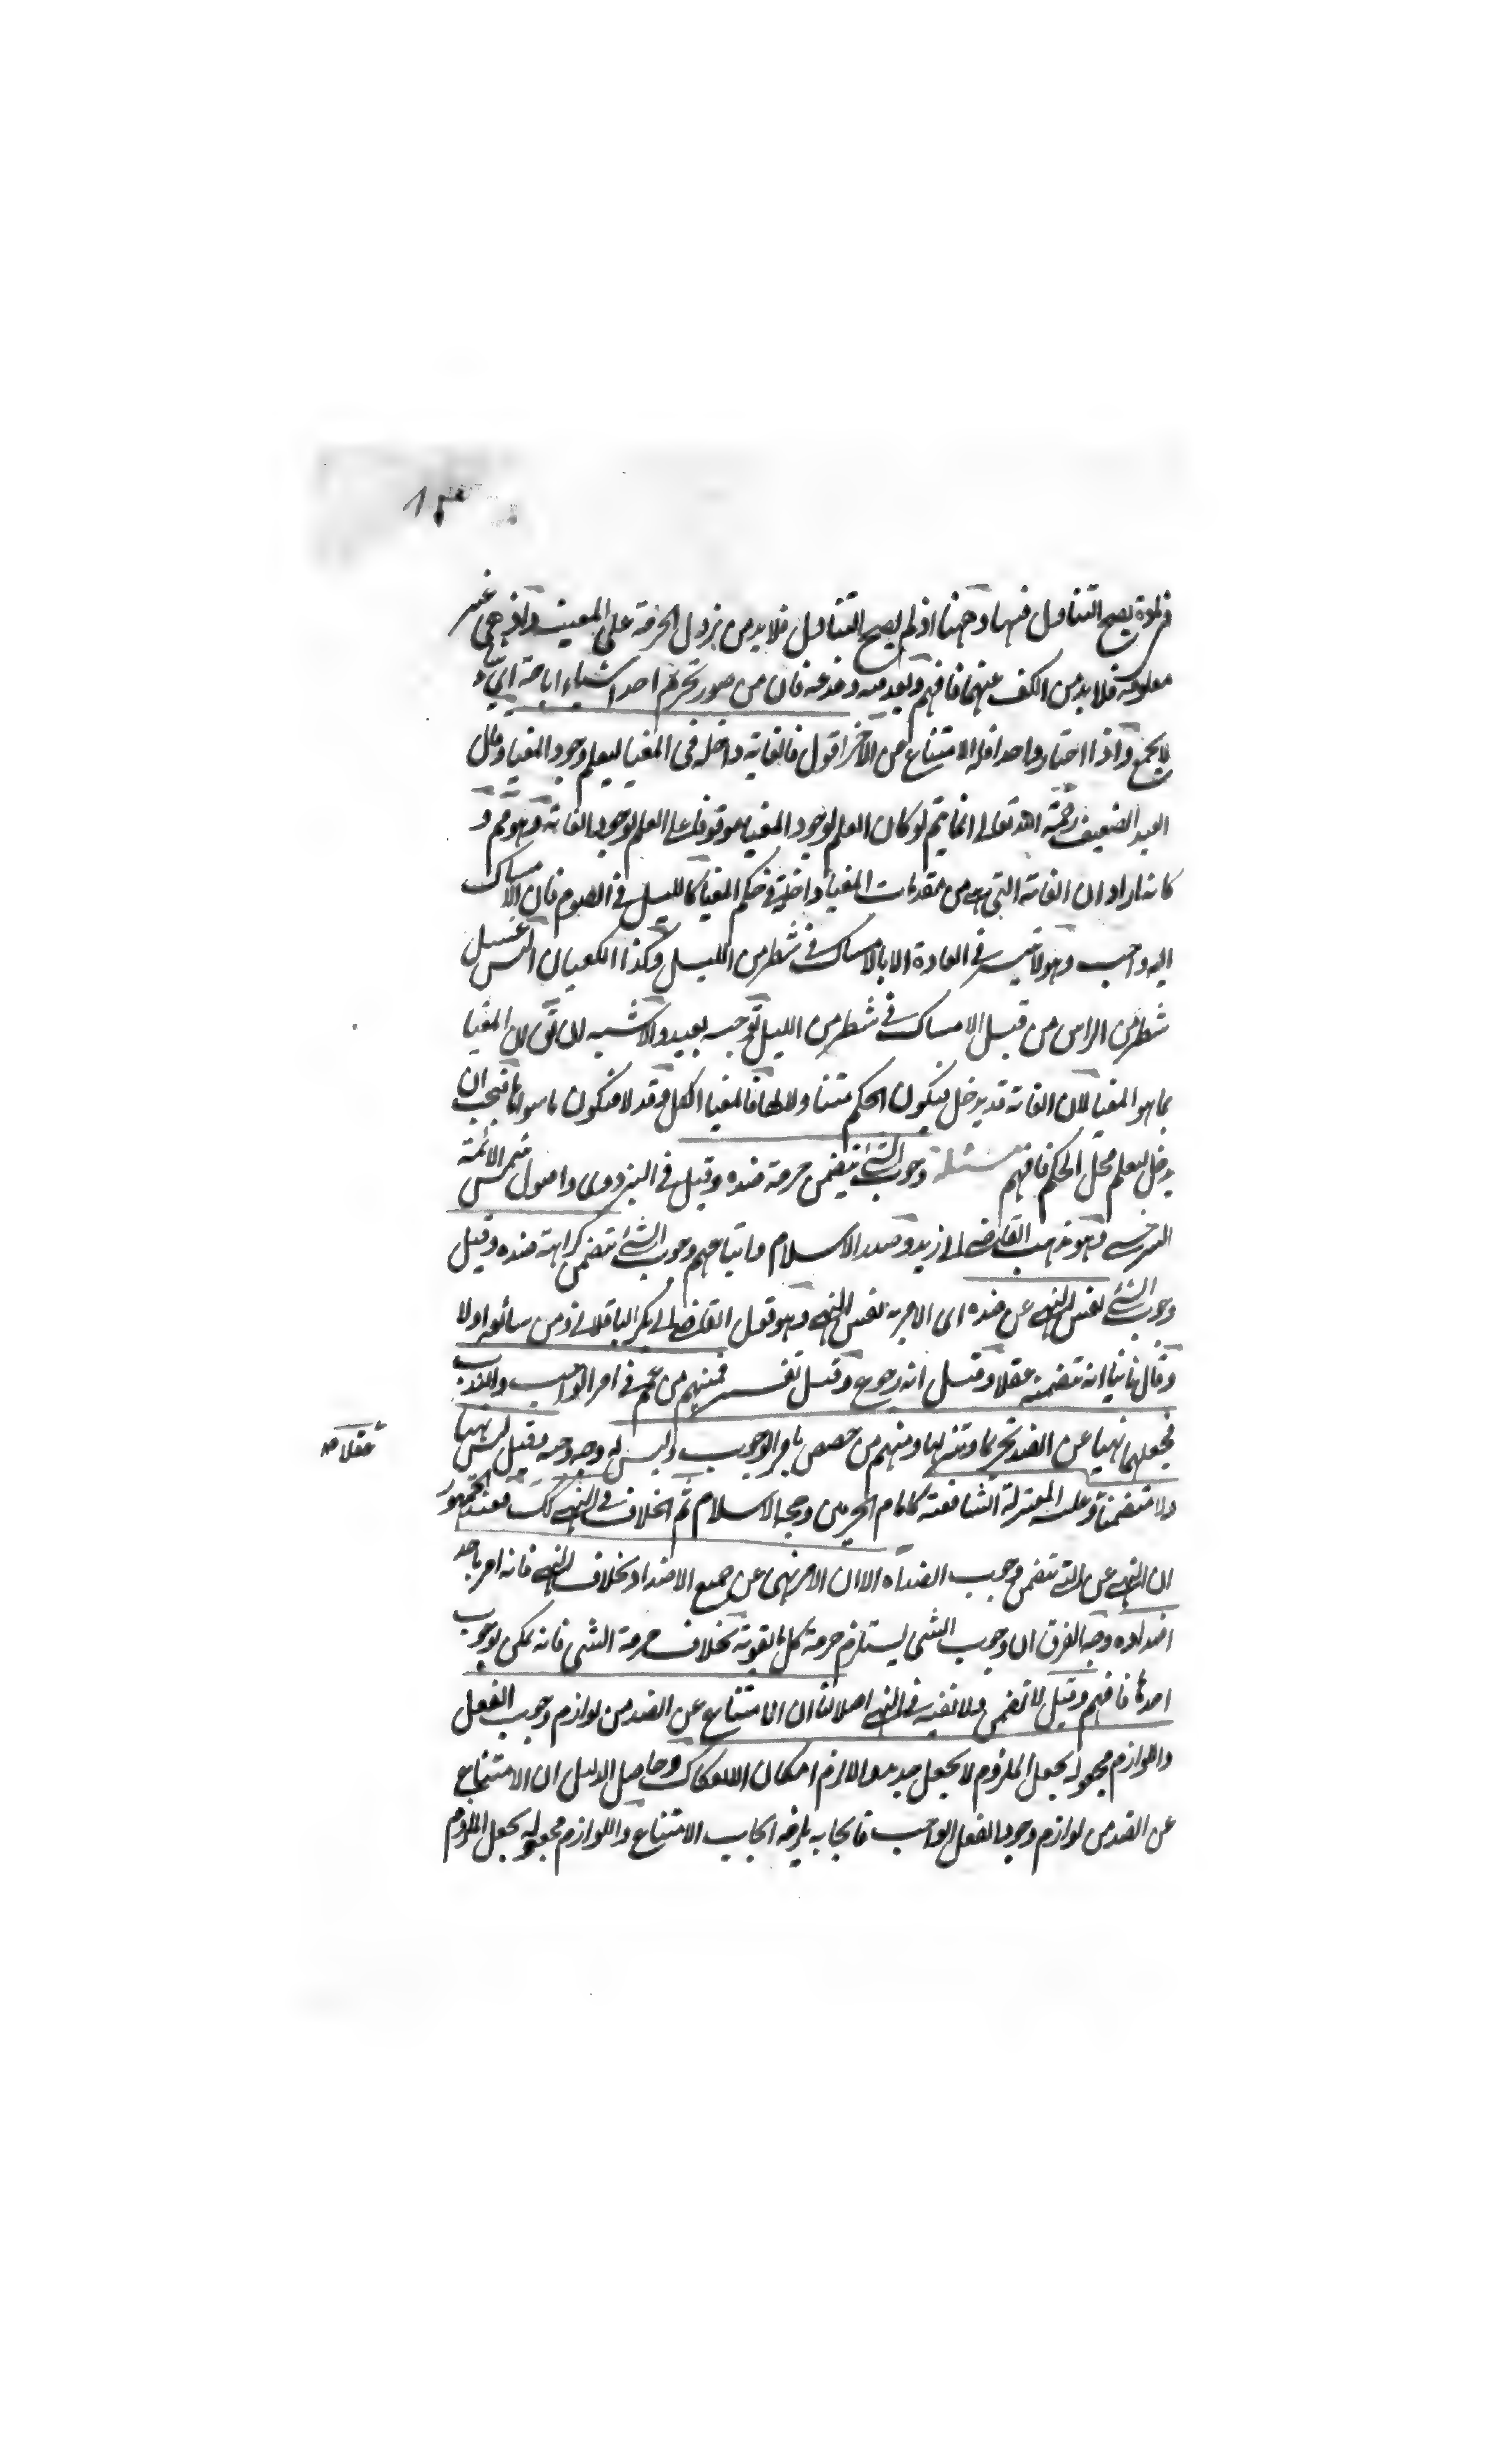 يصح التناول فيها وههنا اذ لم يصح التناول فلا بد من نزول الحرمة على المعين واذ هي غير
معلومة فلا بد من الكف عنهما فافهم وبعد فيه فان من صور تحريم احد اشياء اباحة
لا يجمع واذا اختار واحدا فله الامتناع عن الآخر اقول فالغاية داخله في المغيا ليعلم وجود المغيا وقال
العبد الضعيف رحمة الله تعالى انما يتم لو كان العلم لوجود المغيا موقوفا على العلم لوجود الغاية وهو مم و
كانه اراد ان الغاية التي هي من مقدمات المغيا داخلة في حكم المغيا كالليل في الصوم فان الامساك
اليه واجب وهو لا يتيسر في العادة الا بالامساك في شطر من الليل وكذا الكعبان اليس غسل
شطر من الراس من قبل الامساك في شطر من الليل توجيه بعيد والاشبه ان المغيا
بما هو المغيا لان الغاية قد يدخل فيكون الحكم متناولا لها فالمغيا الكل وقد لا فيكون ما سواها فيجب ان
يدخل ليعلم محل الحكم فافهم مسئلة وجوب الشئ يتضمن حرمة ضده وقيل في البزدوى واصول شمس الائمة
السرخسي وهو مذهب القاضى ابى زيد وصدر الاسلام واتباعهم وجوب الشئ يتضمن كراهة ضده وقيل
وجوب الشئ نفس النهى عن ضده اى الامر به نفس النهى وهو قول القاضى ابى بكر الباقلانى ومن سائعه اولا
وقال ثانيا انه يتضمنه عقلا وقيل انه رجوع وقيل تفسير فمنهم من عمم في امر الواجب والمندوب
فجعلهما نهيا عن الضد تحريما وتنزيها ومنهم من خصص بامر الوجوب وليس له وجه وجيه وقيل ليس نهيا
عقلا صح
ولا متضمنا وعليه المعتزلة الشافعية كامام الحرمين وحجة الاسلام ثم الخلاف في النهى كك فعند الجمهور
ان النهى عن الشئ يتضمن وجوب الضد اه الا ان الامر نهى عن جميع الاضداد بخلاف النهى فانه امر باحد
اضداده وجه الفرق ان وجوب الشى يستلزم حرمة كل ما يفوته بخلاف حرمة الشى فانه يمكن لوجوب
احدها فافهم وقيل لا تضمن ولا نفيه في النهى اصلا لنا ان الامتناع عن الضد من لوازم وجوب الفعل
واللوازم مجعوله بجعل الملزوم لا بجعل جديد والا لزم امكان الانفكاك وحاصل الدليل ان الامتناع
عن الضد من لوازم وجود الفعل الواجب فايجابه يلزمه ايجاب الامتناع واللوازم مجعوله بجعل الملزوم